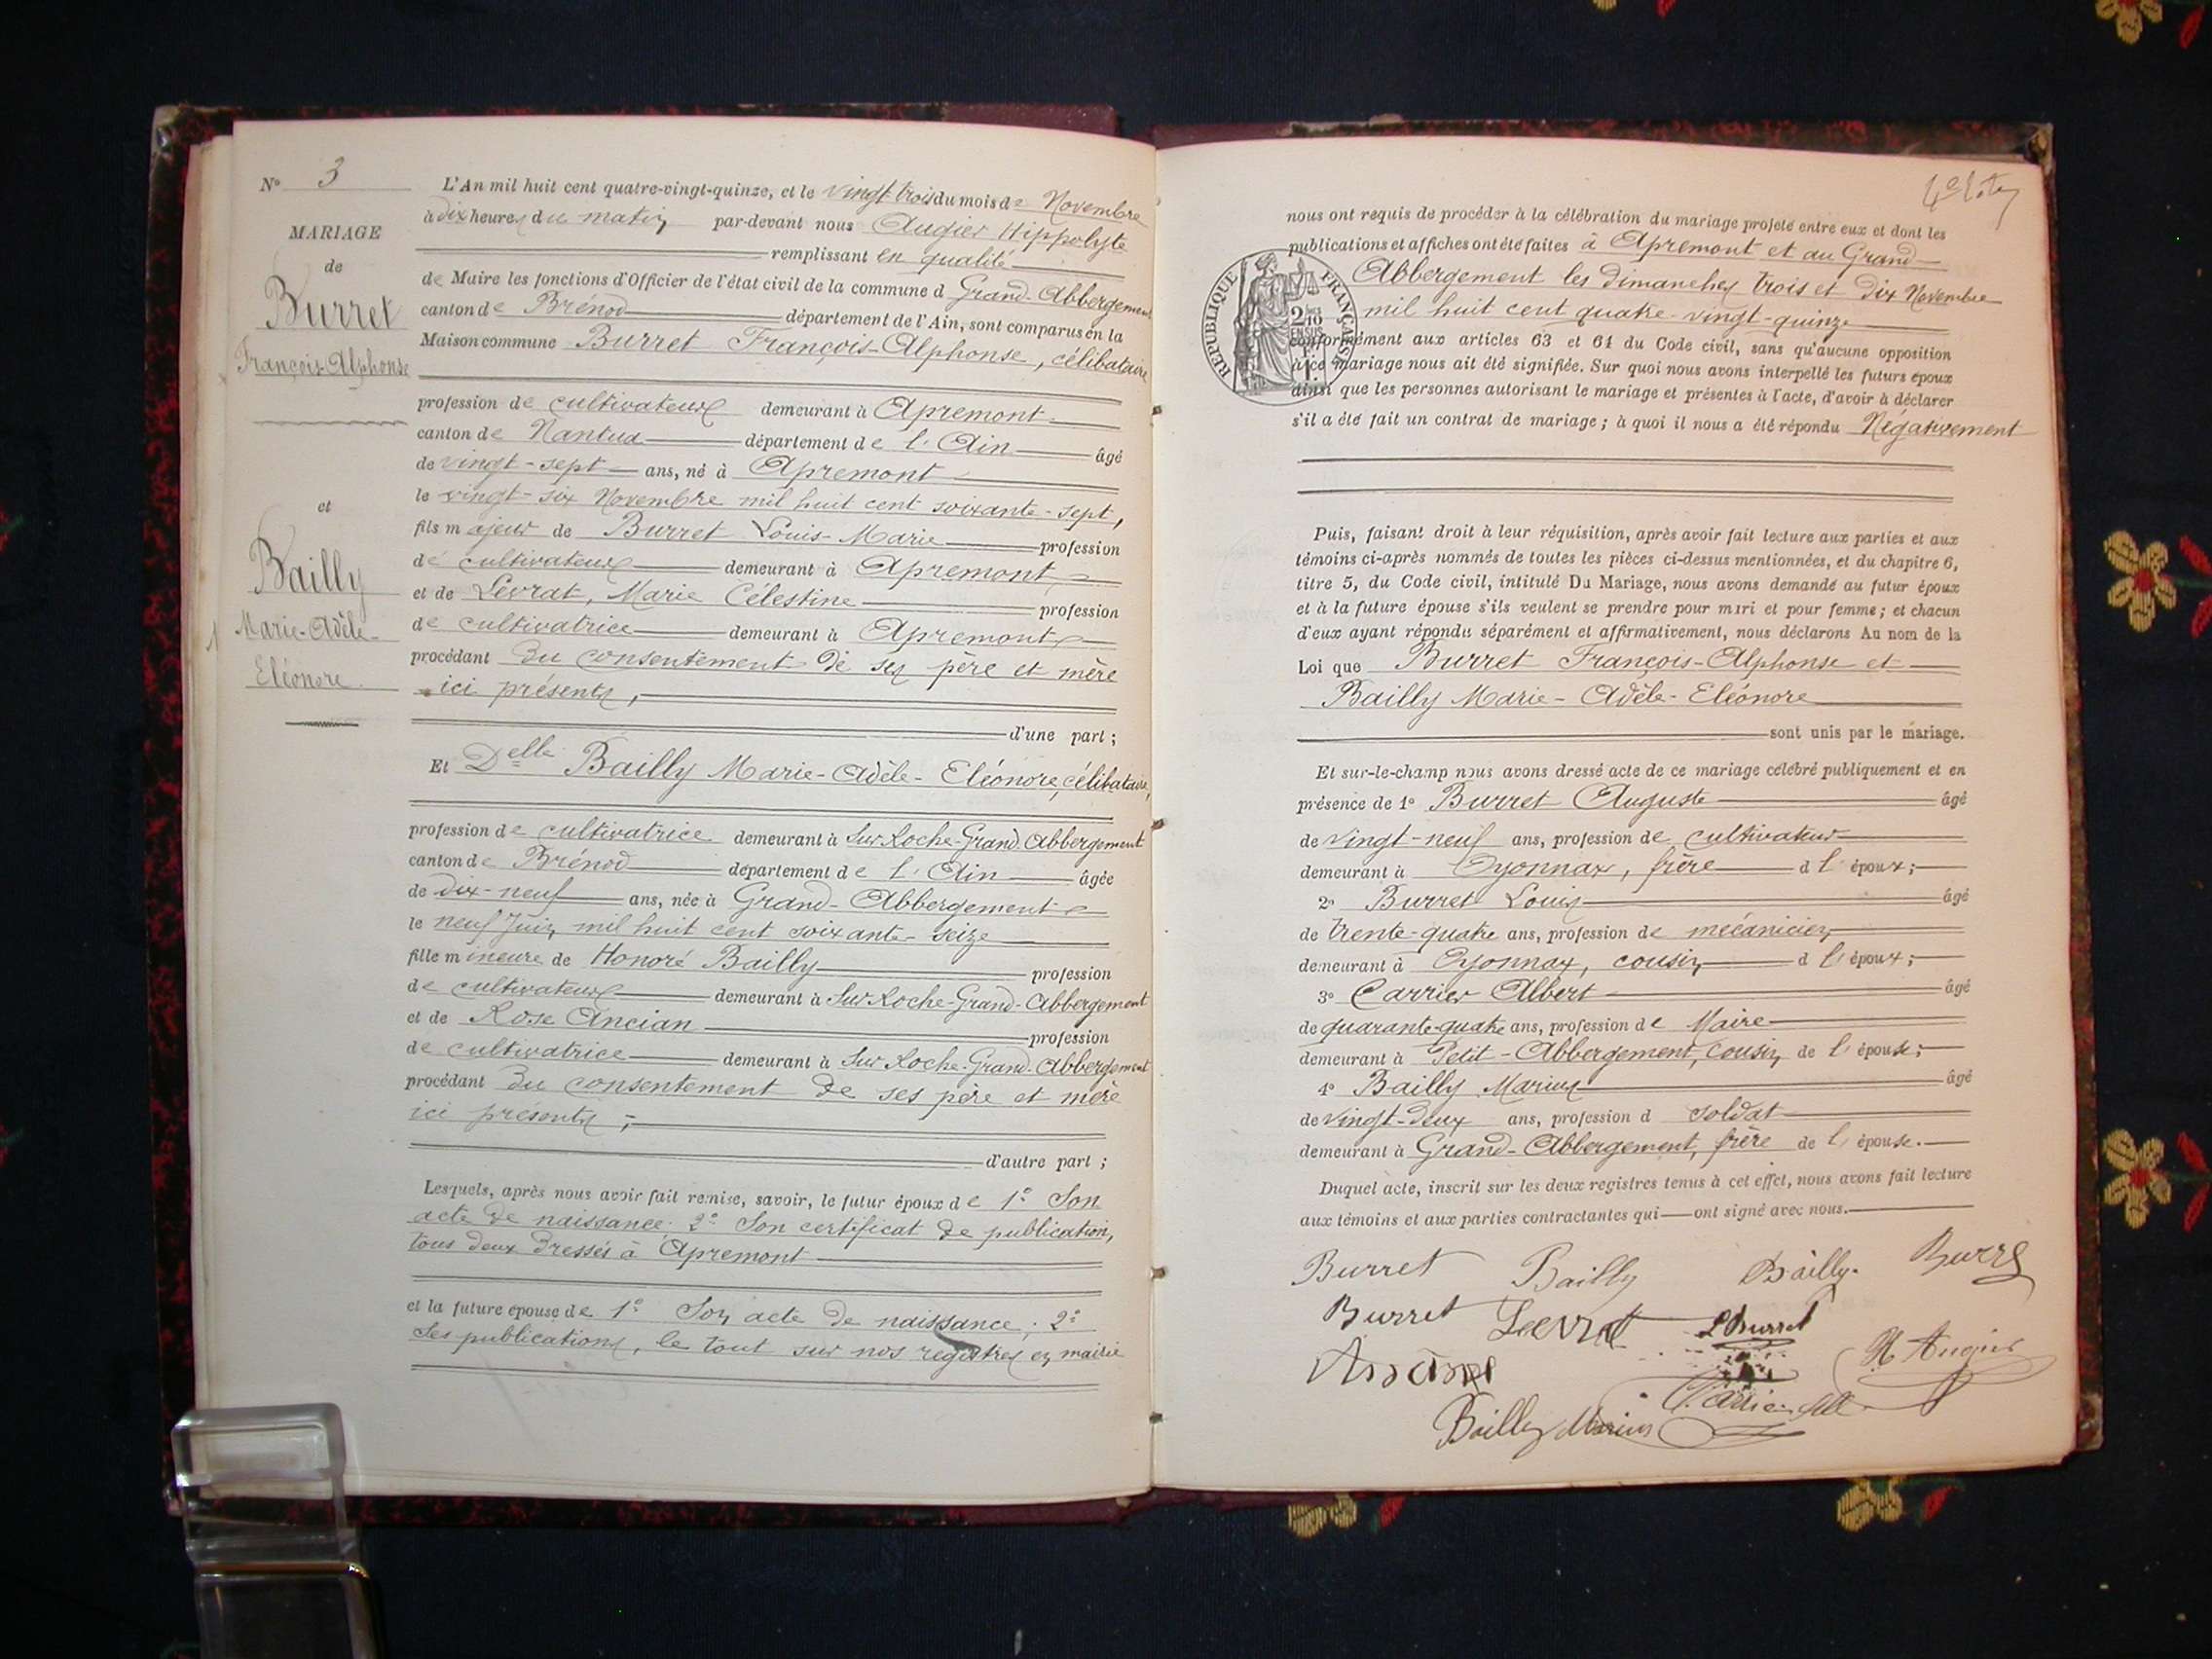 N° 3
MARIAGE
de
Burret
François-Alphonse
et
Bailly
Marie-Adèle-
Eléonore.
L'An mil huit cent quatre-vingt-quinze, et le vingt-trois du mois de Novembre
à dix heures du matin par-devant nous Augier Hippolyte
remplissant en qualité
de Maire les fonctions d'Officier de l'état civil de la commune d Grand-Abbergement
canton de Brénod département de l'Ain, sont comparus en la
Maison commune Burret François-Alphonse, célibataire
profession de cultivateur demeurant à Apremont
canton de Nantua département de l'Ain âgé
de vingt-sept ans, né à Apremont
le vingt-six Novembre mil huit cent soixante-sept,
fils majeur de Burret Louis-Marie profession
de cultivateur demeurant à Apremont
et de Levrat, Marie Célestine profession
de cultivatrice demeurant à Apremont
procédant du consentement de ses père et mère
ici présents,
d'une part;
Et Delle Bailly Marie-Adèle-Eléonore, célibataire,
profession de cultivatrice demeurant à Sur Roche-Grand-Abbergement
canton de Brénod département de l'Ain âgée
de dix-neuf ans, née à Grand-Abbergement
le neuf Juin mil huit cent soixante-seize
fille mineure de Honoré Bailly profession
de cultivateur demeurant à Sur Roche-Grand-Abbergement
et de Rose Ancian profession
de cultivatrice demeurant à Sur Roche-Grand-Abbergement
procédant du consentement de ses père et mère
ici présents;
d'autre part;
Lesquels, après nous avoir fait remise, savoir, le futur époux de 1° Son
acte de naissance; 2° Son certificat de publication,
tous deux dressés à Apremont
et la future épouse de 1° Son acte de naissance; 2°
Ses publications, le tout sur nos registres en mairie
nous ont requis de procéder à la célébration du mariage projeté entre eux et dont les
publications et affiches ont été faites à Apremont et au Grand-
Abbergement les dimanches trois et dix Novembre
mil huit cent quatre-vingt-quinze
RÉPUBLIQUE FRANÇAISE
2/10 EN SUS
conformément aux articles 63 et 64 du Code civil, sans qu'aucune opposition
à ce mariage nous ait été signifiée. Sur quoi nous avons interpellé les futurs époux
ainsi que les personnes autorisant le mariage et présentes à l'acte, d'avoir à déclarer
s'il a été fait un contrat de mariage; à quoi il nous a été répondu Négativement
Puis, faisant droit à leur réquisition, après avoir fait lecture aux parties et aux
témoins ci-après nommés de toutes les pièces ci-dessus mentionnées, et du chapitre 6,
titre 5, du Code civil, intitulé Du Mariage, nous avons demandé au futur époux
et à la future épouse s'ils veulent se prendre pour mari et pour femme; et chacun
d'eux ayant répondu séparément et affirmativement, nous déclarons Au nom de la
Loi que Burret François-Alphonse et
Bailly Marie-Adèle-Eléonore
sont unis par le mariage.
Et sur-le-champ nous avons dressé acte de ce mariage célébré publiquement et en
présence de 1° Burret Auguste âgé
de vingt-neuf ans, profession de cultivateur
demeurant à Oyonnax, frère d l'époux;
2° Burret Louis âgé
de trente-quatre ans, profession de mécanicien
demeurant à Oyonnax, cousin d l'époux;
3° Carrier Albert âgé
de quarante-quatre ans, profession de Maire
demeurant à Petit-Abbergement, cousin de l'épouse;
4° Bailly Marius âgé
de vingt-deux ans, profession d soldat
demeurant à Grand-Abbergement, frère de l'épouse.
Duquel acte, inscrit sur les deux registres tenus à cet effet, nous avons fait lecture
aux témoins et aux parties contractantes qui ont signé avec nous.
Burret Bailly Bailly
Burret Levrat L Burret
H Augier
Bailly Marius